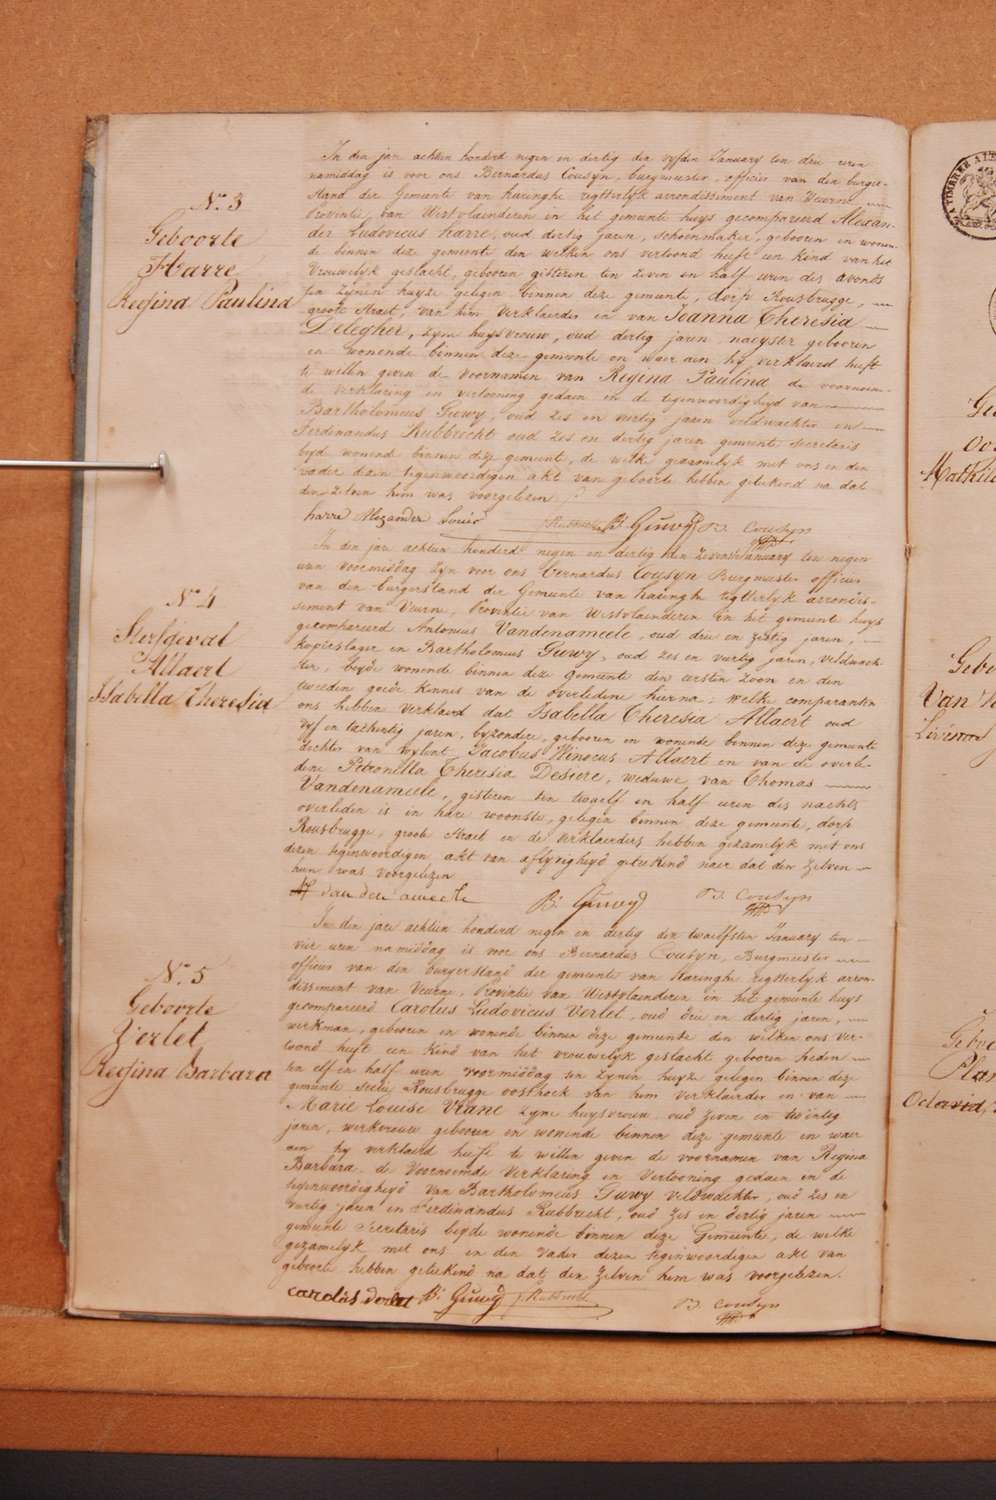 N.º 3
Geboorte
Harre
Regina Paulina
In den jare achtien honderd negen en dertig den vyfden January ten drie uren
namiddag is voor ons Bernardus Cousyn, burgmeester, officier van den burger-
stand der Gemeente van haringhe regtterlyk arrondissement van Veurne
Provintie van Westvlaenderen in het gemeente huys gecompareerd Alexan-
der Ludovicus harre, oud dertig jaren, schoenmaker, gebooren en wonen-
de binnen deze gemeente den welken ons vertoond heeft een kind van het
Vrouwelyk geslacht, gebooren gisteren ten zeven en half uren des avonds
ten zynen huyze gelegen binnen deze gemeente, dorp Rousbrugge,
groote straet, van hem verklaerder en van Joanna Theresia
Delegher, zyne huysvrouw, oud dertig jaren, naeyster gebooren
en wonende binnen deze gemeente en waer aen hy verklaerd heeft
te willen geven de voornamen van Regina Paulina de voornoem-
de verklaring en vertooning gedaen en de tegenwoordigheyd van
Bartholomeus Guwy, oud zes en vertig jaren veldwachter en
Ferdinandus Rubbrecht oud zes en dertig jaren gemeente secretaris
beyd wonend binnen deze gemeente, de welke gezamelyk met ons en den
vader dezen tegenwoordigen akt van geboorte hebben geteekend na dat
den zelven hem was voorgelezen
harre Alexander Louis F. Rubbrecht B. Guwy B. Cousyn
N.º 4
Sterfgeval
Allaert
Isabella Theresia
In den jare achtien honderd negen en dertig den zevensten January ten negen
uren voormiddag zyn voor ons bernardus Cousyn Burgmeester officier
van den burgerstand der Gemeente van haringhe regtterlyk arrondis-
sement van Veurne, Provintie van Westvlaenderen in het gemeente huys
gecompareerd Antonius Vandenameele, oud drie en zestig jaren,
koperslager en Bartholomeus Guwy, oud zes en vertig jaren, veldwach-
ter, beyde wonende binnen deze gemeente den eersten zoon en den
tweeden goede kennis van de overledene hierna, welke comparanten
ons hebben verklaerd dat Isabella Theresia Allaert oud
vyf en tachentig jaren, byzondere, gebooren en wonende binnen deze gemeente
dochter van wylent Jacobus Winocus Allaert en van de overle-
dene Petronilla Theresia Desiere, weduwe van Thomas
Vandenameele, gisteren ten twaelf en half uren des nachts
overleden is in hare woonste, gelegen binnen deze gemeente, dorp
Rousbrugge, groote straet en de verklaerders hebben gezamelyk met ons
dezen tegenwoordigen akt van aflyvigheyd geteekend naer dat den zelven
hun was voorgelezen
van den ameele B. Guwy B. Cousyn
N.º 5
Geboorte
Verlet
Regina Barbara
In den jare achtien honderd negen en dertig den twaelfsten January ten
vier uren namiddag is voor ons Bernardus Cousyn, Burgmeester
officier van den burgerstand der gemeente van Haringhe regtterlyk arron-
dissement van Veurne, Provintie van Westvlaenderen in het gemeente huys
gecompareerd Carolus Ludovicus Verlet, oud drie en dertig jaren,
werkman, gebooren en wonende binnen deze gemeente den welken ons ver-
toond heeft een kind van het vrouwelyk geslacht gebooren heden
ten elf en half uren voormiddag ten zynen huyze gelegen binnen deze
gemeente sectie Rousbrugge oosthoek van hem verklaerder en van
Marie Louise Vrane zyne huysvrouw, oud zeven en twintig
jaren, werkvrouw gebooren en wonende binnen deze gemeente en waer
aen hy verklaerd heeft te willen geven de voornamen van Regina
Barbara de voornoemde verklaring en vertooning gedaen en de
tegenwoordigheyd van Bartholomeus Guwy veldwachter, oud zes en
vertig jaren en Ferdinandus Rubbrecht, oud zes en dertig jaren
gemeente secretaris beyde wonende binnen deze Gemeente, de welke
gezamelyk met ons en den vader dezen tegenwoordigen akt van
geboorte hebben geteekend na dat den zelven hem was voorgelezen.
carolus verlet B. Guwy F. Rubbrecht B. Cousyn